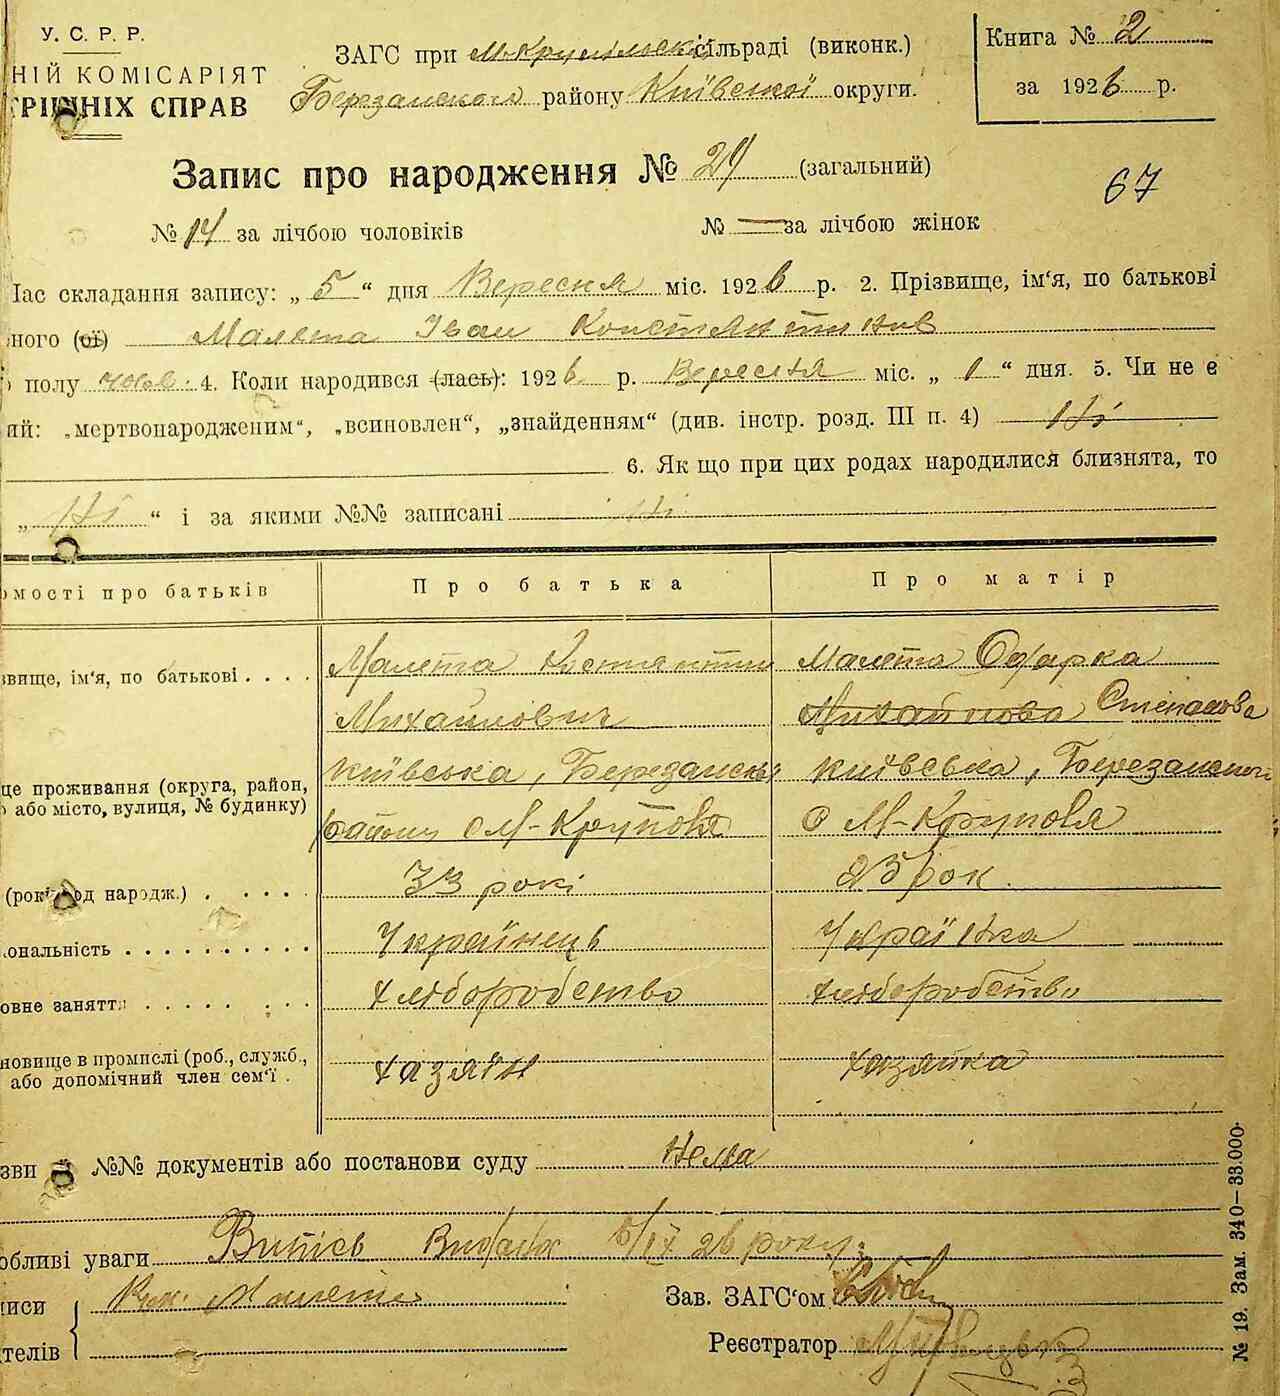 У. С. Р. Р.
НІЙ КОМІСАРІЯТ
РІШНІХ СПРАВ
ЗАГС при М-Крупільскі сільраді (виконк.)
Березанского району Київскої округи.
Книга № 2
за 1926 р.
Запис про народження № 21 (загальний)
67
№ 14 за лічбою чоловіків № — за лічбою жінок
Час складання запису: „ 5 “ дня Вересня міс. 1926 р. 2. Прізвище, ім'я, по батькові
ного (ої) Малета Іван Констянтинов
полу чолов. 4. Коли народився (лась): 1926 р. Вересня міс. „ 1 “ дня. 5. Чи не є
ий: „мертвонародженим“, „всиновлен“, „знайденням“ (див. інстр. розд. III п. 4) Ні
6. Як що при цих родах народилися близнята, то
„ Ні “ і за якими №№ записані Ні
омості про батьків Про батька Про матір
звище, ім'я, по батькові Малета Костянтин Малета Одарка
Михайлович Михайлова Степанова
це проживання (округа, район, Київська, Березанськ Київська, Березанского
або місто, вулиця, № будинку) району с М-Круповя с М-Круповя
(рок од народж.) 33 рокі 25 рок.
іональність Українець Українка
овне заняття хліборобство хліборобство
новище в промислі (роб., служб., або допомічний член сем'ї . хазяїн хазяйка
зви №№ документів або постанови суду Нема
обливі уваги Випісь Видана 5/IX 26 року
писи Малета Зав. ЗАГС'ом
ителів Реєстратор
№ 19. Зам. 340—33.000.